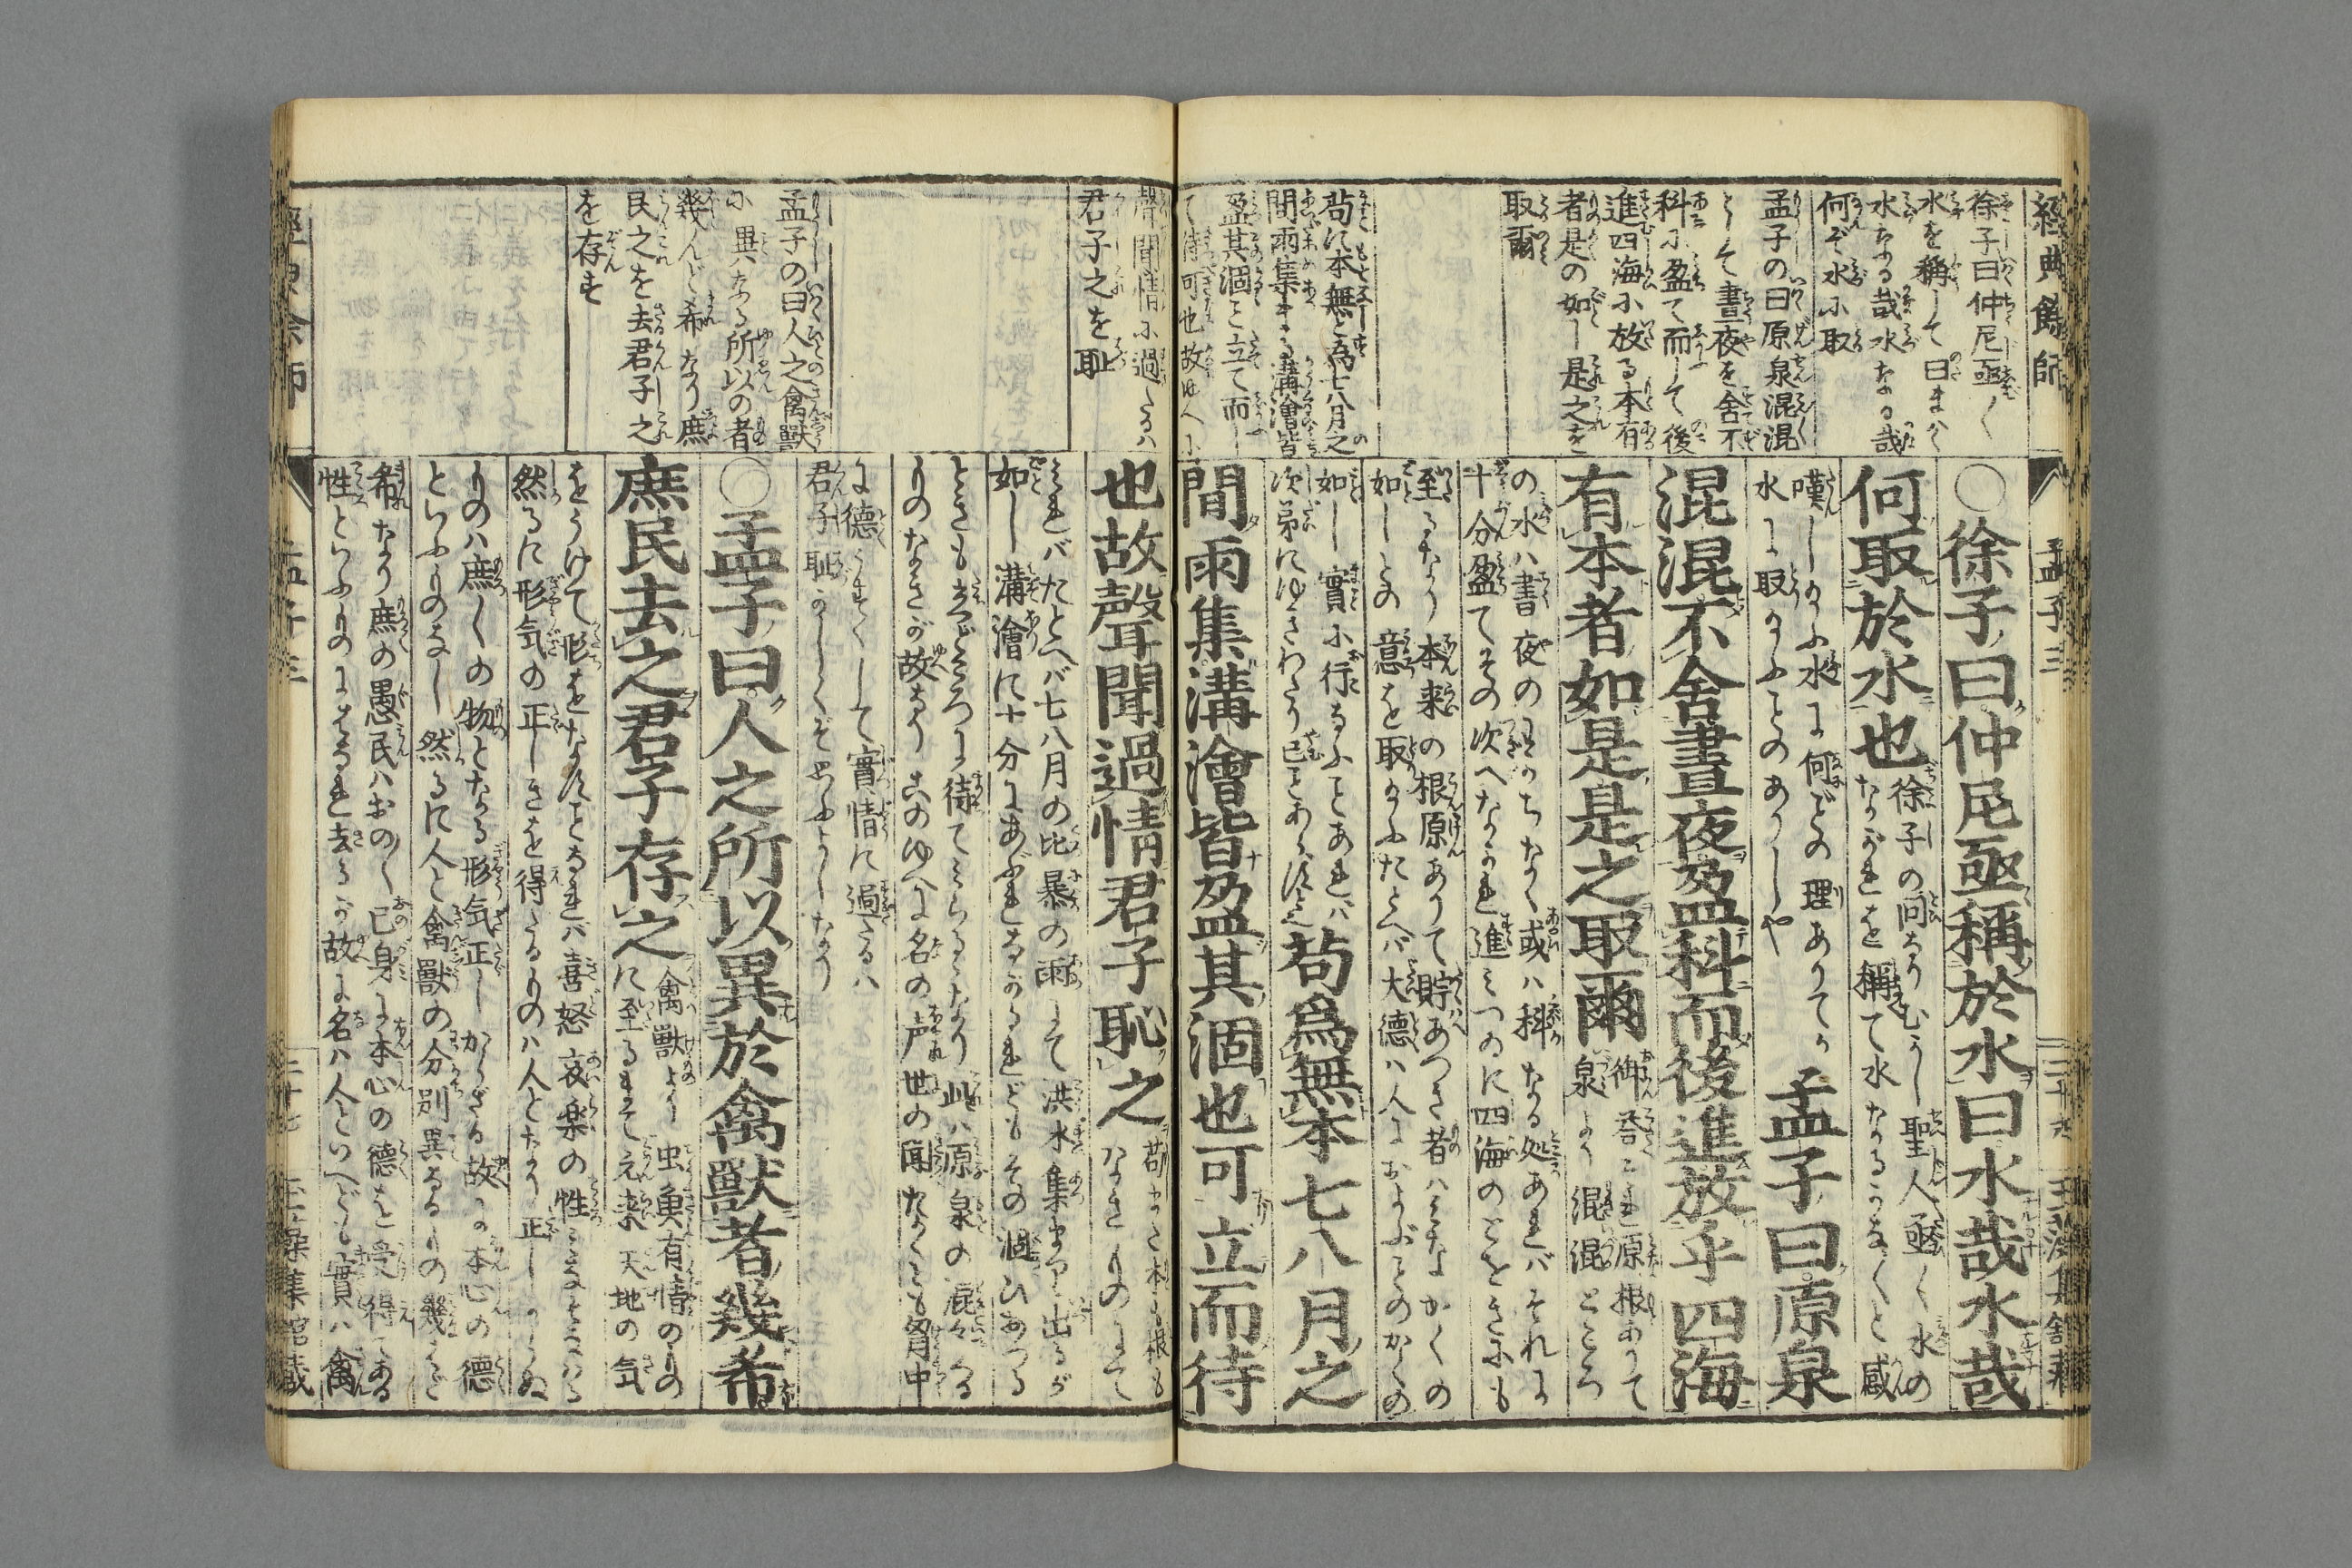 經典餘師
徐子曰仲尼亟〱
水を稱して曰まはく
水なる哉水なる哉
何ぞ水に取
孟子の曰原泉混混
として晝夜を舍不
科に盈て而して後
進四海に放る本有
者是の如し是之を
取爾
苟に本無と為七八月之
間雨集まる溝澮皆
盈其涸こと立て而
て待可也故ゆへに
孟子三
〇徐子曰仲尼亟稱於水曰水哉水哉
何取於水也
徐子の問なりむかし聖人亟〱水の
ながれを稱て水なるかな〱と感
嘆しかふ水に何どの理ありてか
水に取かふことのありしや
孟子曰原泉
混混不舍晝夜盈科而後進放乎四海
有本者如是是之取爾
御答にこれ原根ありて
泉より混混ところ
の水ハ書夜のわかちなく或ハ科なる処あれバそれに
十分盈てその次へながれ進ミつゐに四海のとをきにも
至るなり本来の根原ありて貯あつき者ハミなかくの
如しとの意を取かふたとへバ大德ハ人におよぶことのかくの
如し實に行るふことあれバ
次第にゆきわたり已ことあらず
苟爲無本七八月之
間雨集溝澮皆盈其涸也可立而待
聲聞情に過るハ
君子之を恥
孟子の曰人之禽獸
に異なる所以の者
幾んど希なり庶
民之を去君子之
を存す
也故聲聞過情君子恥之
苟にも本も根も
なきものにて
これバたとへバ七八月の比暴の雨にて洪水集まり出るが
如し溝澮に十分にあぶれるなれどもその涸ひあつる
ときも立どころに待てミらるゝなり此ハ原泉の混々たる
ものなきが故なりこのゆへに名の声世の聞たくとも胷中
に德うすくして實情に過るハ
君子恥かしくぞ思ふよしなり
〇孟子曰人之所以異於禽獸者幾希
庶民去之君子存之
禽獸より虫魚有情のもの
に至るまで元来天地の気
をうけて形をなすことなれバ喜怒哀楽の性ミなそなハる
然るに形気の正しきを得たるものハ人となり正しからぬ
ものハ庶〱の物となる形気正しからざる故に本心の德
といふものなし然るに人と禽獸の分別異なるもの幾んど
希なり庶の愚民ハおの〱己身に本心の德を受得てある
性といふものにはなれ去るが故に名ハ人といへども實ハ禽